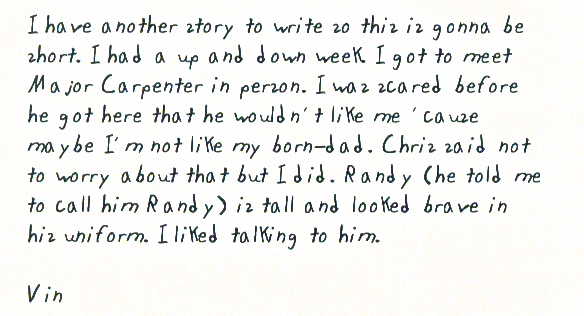 I have another story to write so this is gonna be
short. I had a up and down week I got to meet
Major Carpenter in person. I was scared before
he got here that he wouldn't like me 'cause
maybe I'm not like my born-dad. Chris said not
to worry about that but I did. Randy (he told me
to call him Randy) is tall and looked brave in
his uniform. I liked talking to him.
Vin